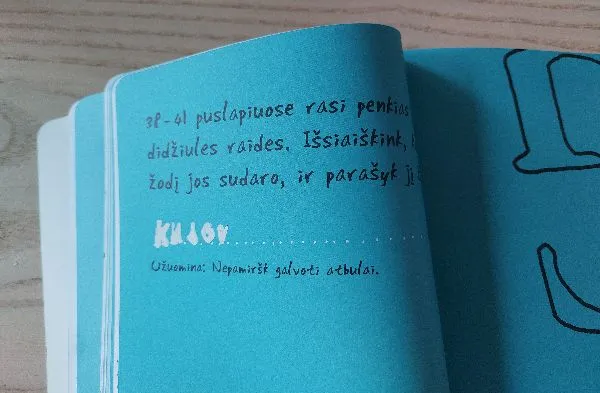 38-41 puslapiuose rasi penkias
didžiules raides. Išsiaiškink,
žodį jos sudaro, ir parašyk jį
Užuomina: Nepamiršk galvoti atbulai.